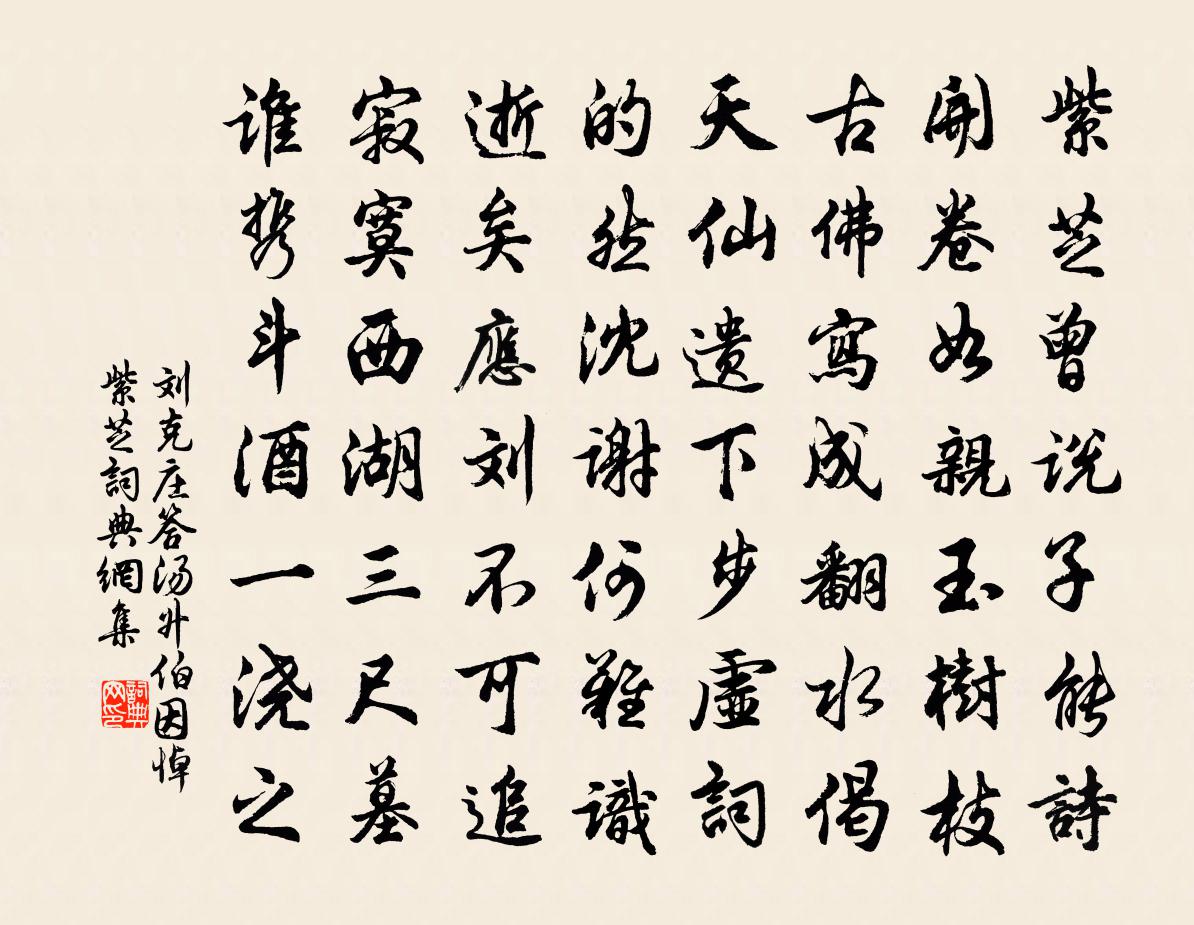 紫芝曾说子能詩
開卷如親玉樹枝
古佛寫成翻水偈
天仙遗下步虛詞
的然沈谢何難識
逝矣應刘不可追
寂寞西湖三尺墓
谁携斗酒一浇之
刘克庄答汤升伯因悼
紫芝詞典網集
詞典网印